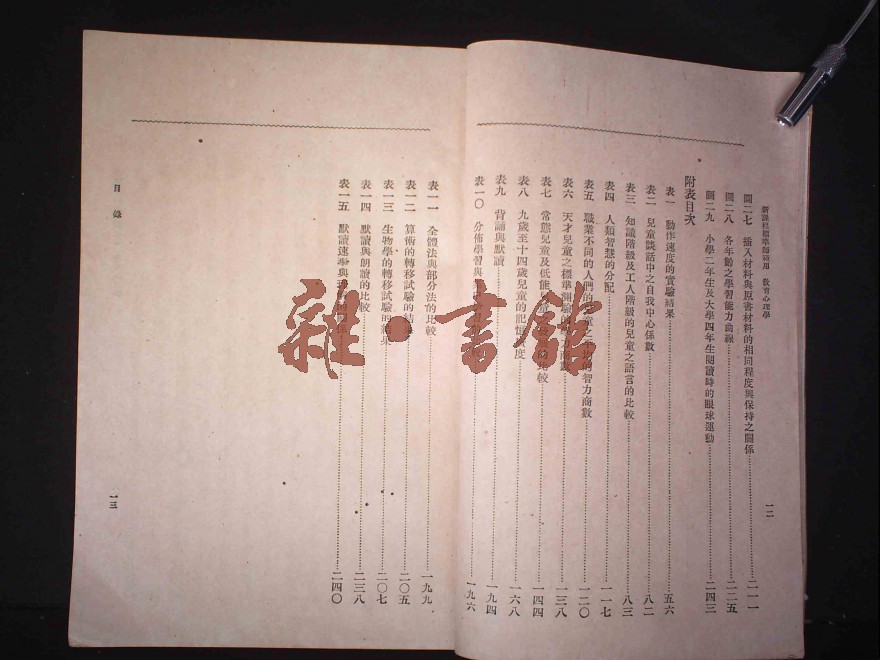 新課程標準師範適用 教育心理學
一二
圖二七 插入材料與原書材料的相同程度與保持之關係……二一一
圖二八 各年齡之學習能力曲線……二二五
圖二九 小學二年生及大學四年生閱讀時的眼球運動……二四三
附表目次
表一 動作速度的實驗結果……五六
表二 兒童談話中之自我中心係數……八二
表三 知識階級及工人階級的兒童之語言的比較……八三
表四 人類智慧的分配……一一七
表五 職業不同的人們的兒童之平均的智力商數……一二〇
表六 天才兒童之標準測驗的力商數……一三八
表七 常態兒童及低能童的比較……一四四
表八 九歲至十四歲兒童的記憶度……一六八
表九 背誦與默讀……一九四
表一〇 分佈學習與……一九六
表一一 全體法與部分法的比較……一九九
表一二 算術的轉移試驗的結果……二〇五
表一三 生物學的轉移試驗的結果……二〇七
表一四 默讀與朗讀的比較……二三八
表一五 默讀速率與……二四〇
目錄
一三
雜·書館